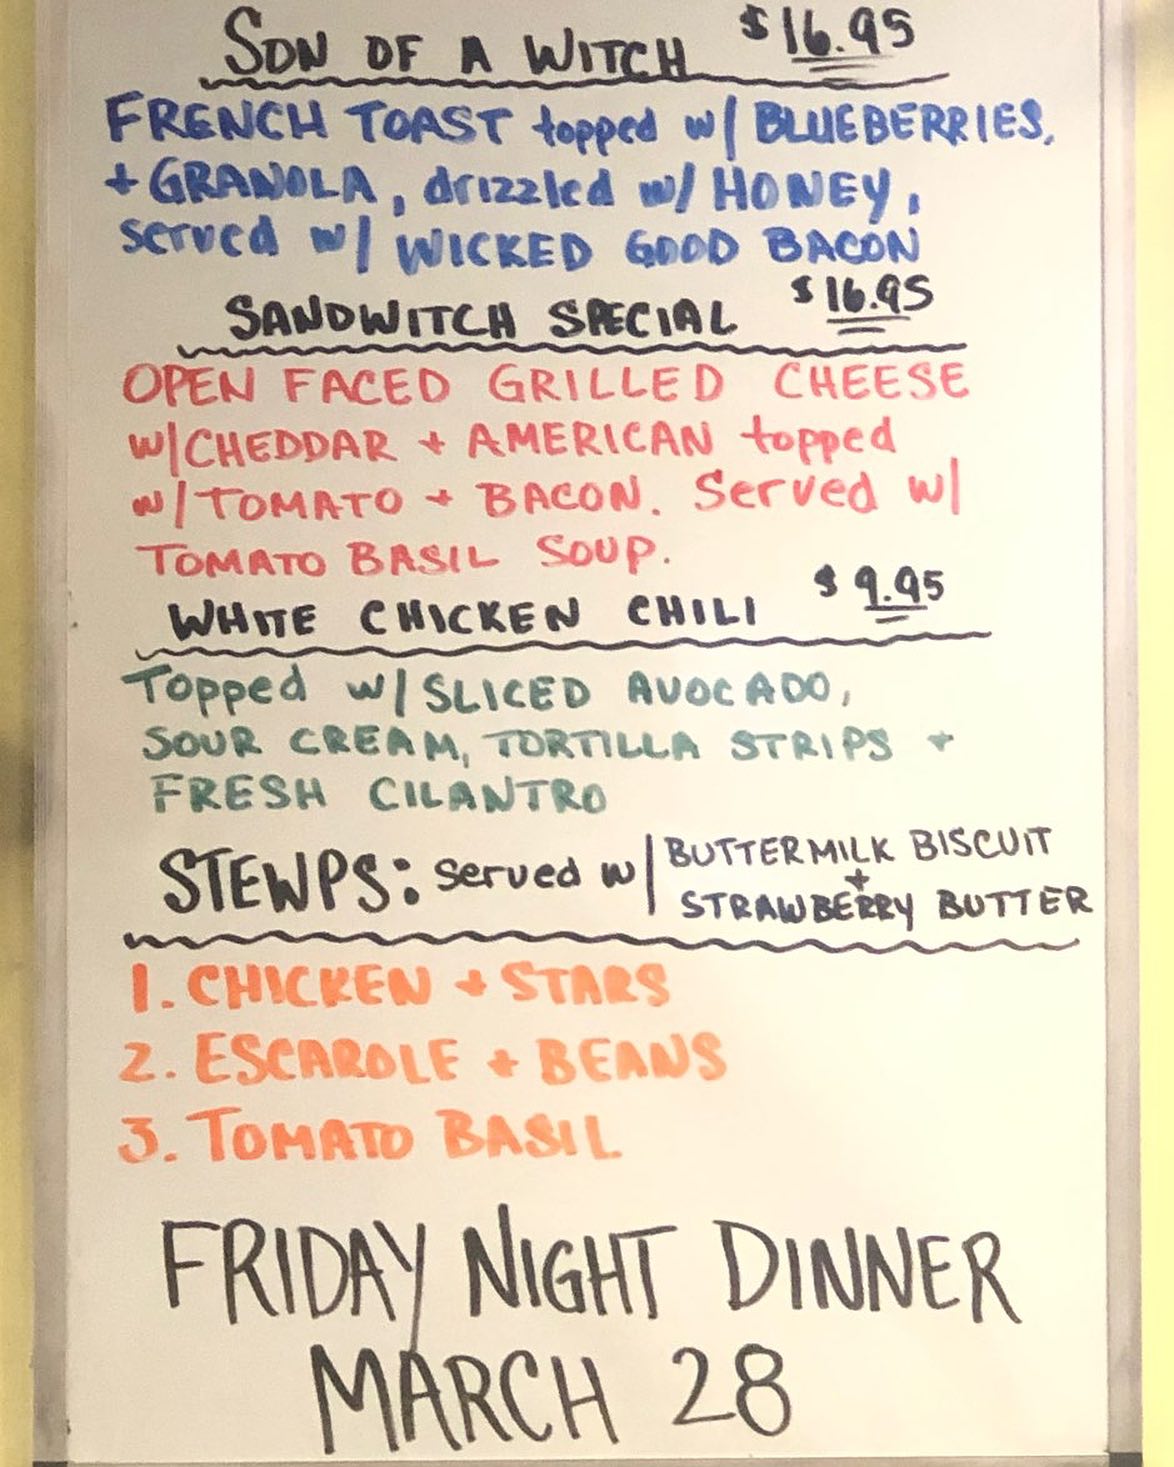 SON OF A WITCH $16.95
FRENCH TOAST topped w/ BLUEBERRIES,
+ GRANOLA, drizzled w/ HONEY,
served w/ WICKED GOOD BACON
SANDWITCH SPECIAL $16.95
OPEN FACED GRILLED CHEESE
w/CHEDDAR + AMERICAN topped
w/TOMATO + BACON. Served w/
TOMATO BASIL SOUP.
WHITE CHICKEN CHILI $9.95
Topped w/ SLICED AVOCADO,
SOUR CREAM, TORTILLA STRIPS +
FRESH CILANTRO
STEWPS: served w/ BUTTERMILK BISCUIT
+
STRAWBERRY BUTTER
1. CHICKEN + STARS
2. ESCAROLE + BEANS
3. TOMATO BASIL
FRIDAY NIGHT DINNER
MARCH 28